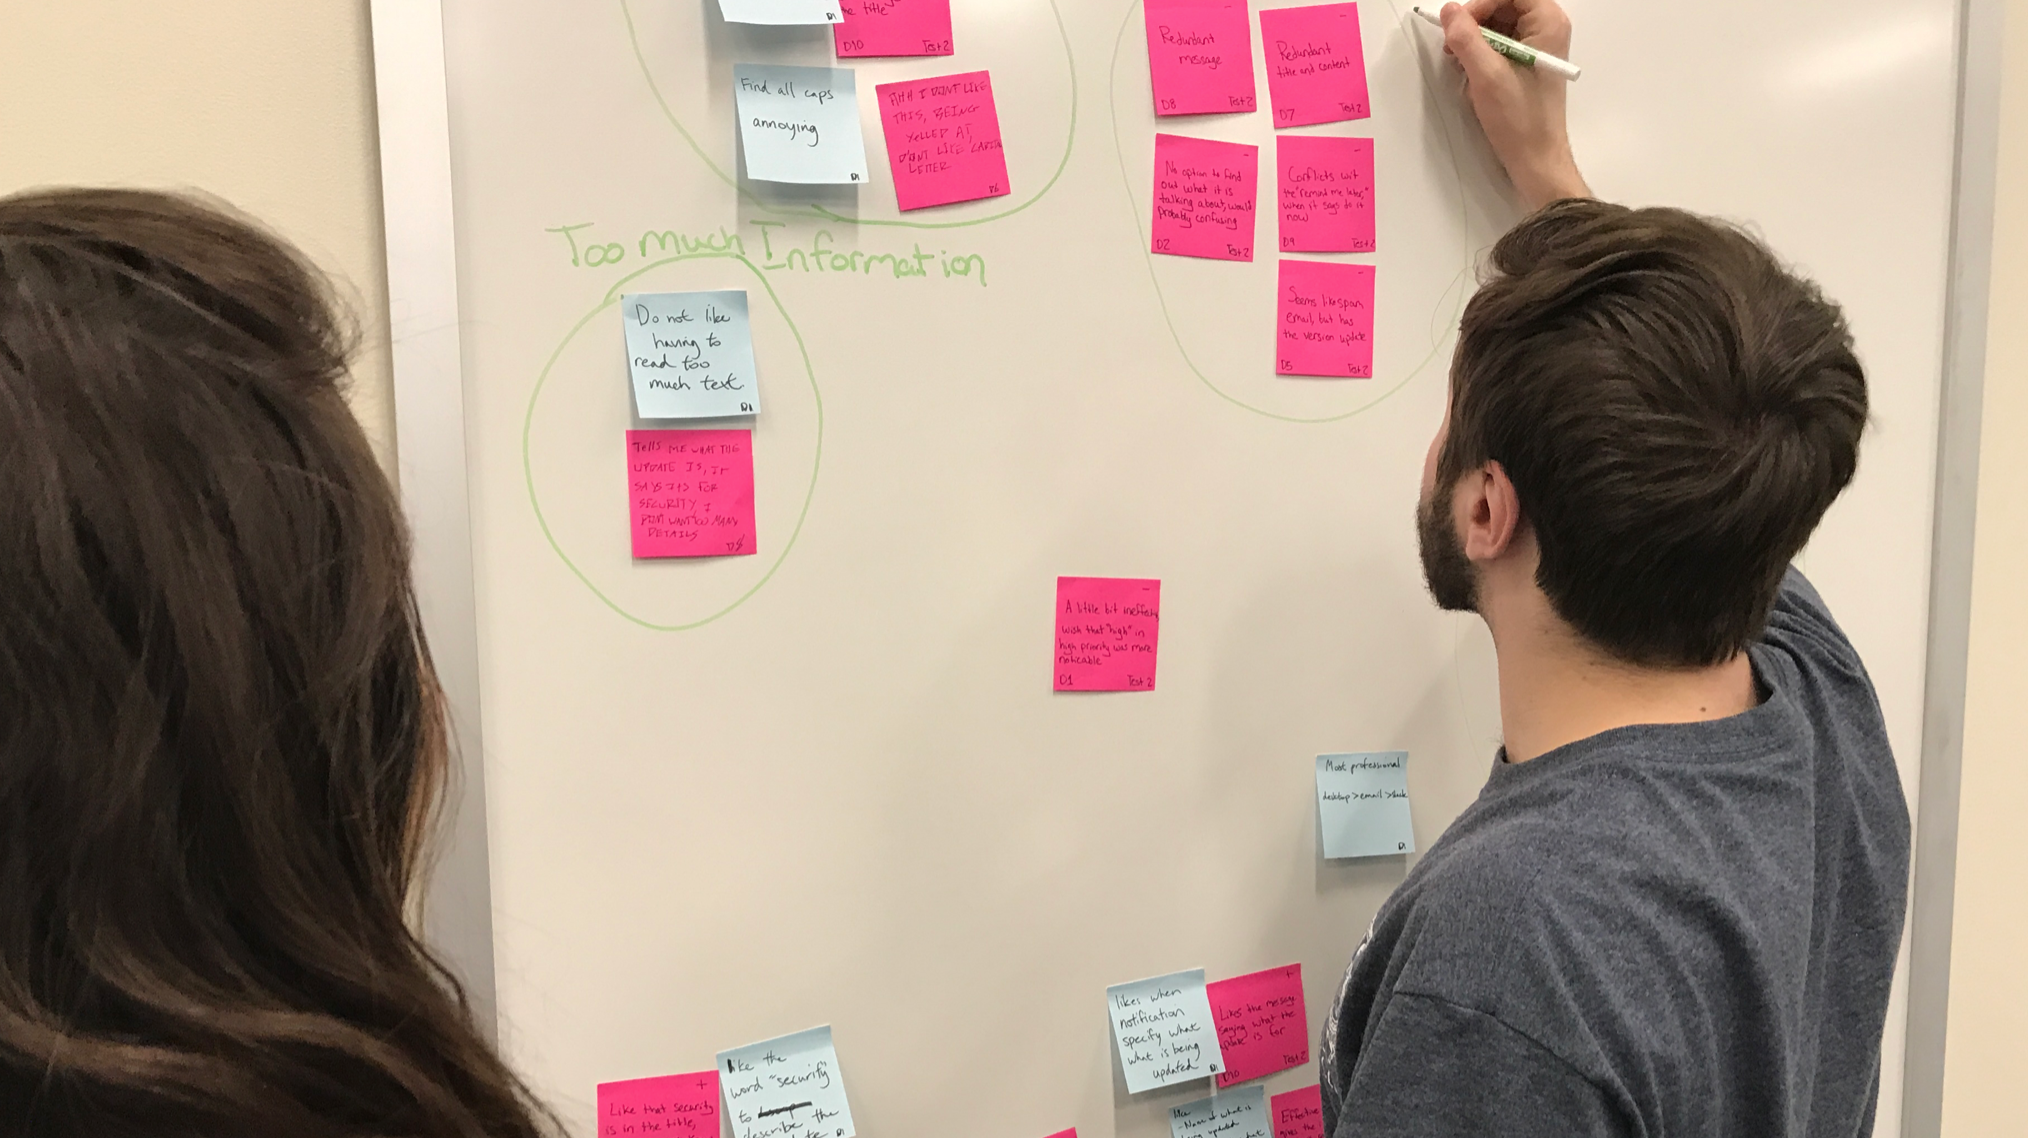 the title
D10 Test 2
Find all caps
annoying
D1
AHH I DONT LIKE
THIS, BEING
YELLED AT,
DONT LIKE
LETTER
D6
Redundant
message
D8 Test 2
Redundant
title and content
D7 Test 2
No option to find
out what it is
talking about, would
probably confusing
D2 Test 2
Conflicts wit
the "remind me later,"
when it says do it
now
D9 Test 2
Seems like spam
email, but has
the version update
D5 Test 2
Too much Information
Do not like
having to
read too
much text.
D1
Tells ME WHAT THE
UPDATE IS, IF
SAYS ITS FOR
SECURITY, I
DONT WANT TOO MANY
DETAILS
D8
A little bit
wish that "high" in
high priority was more
noticable
D1 Test 2
Most professional
desktop > email >
D1
likes when
notification
specify what
what is being
updated
D1
+
Likes the message
saying what the
update is for
D10 Test 2
+
Like that security
is in the title,
like the
word "security"
to
describe the
D1
- Name of what is
being updated
Effective
the